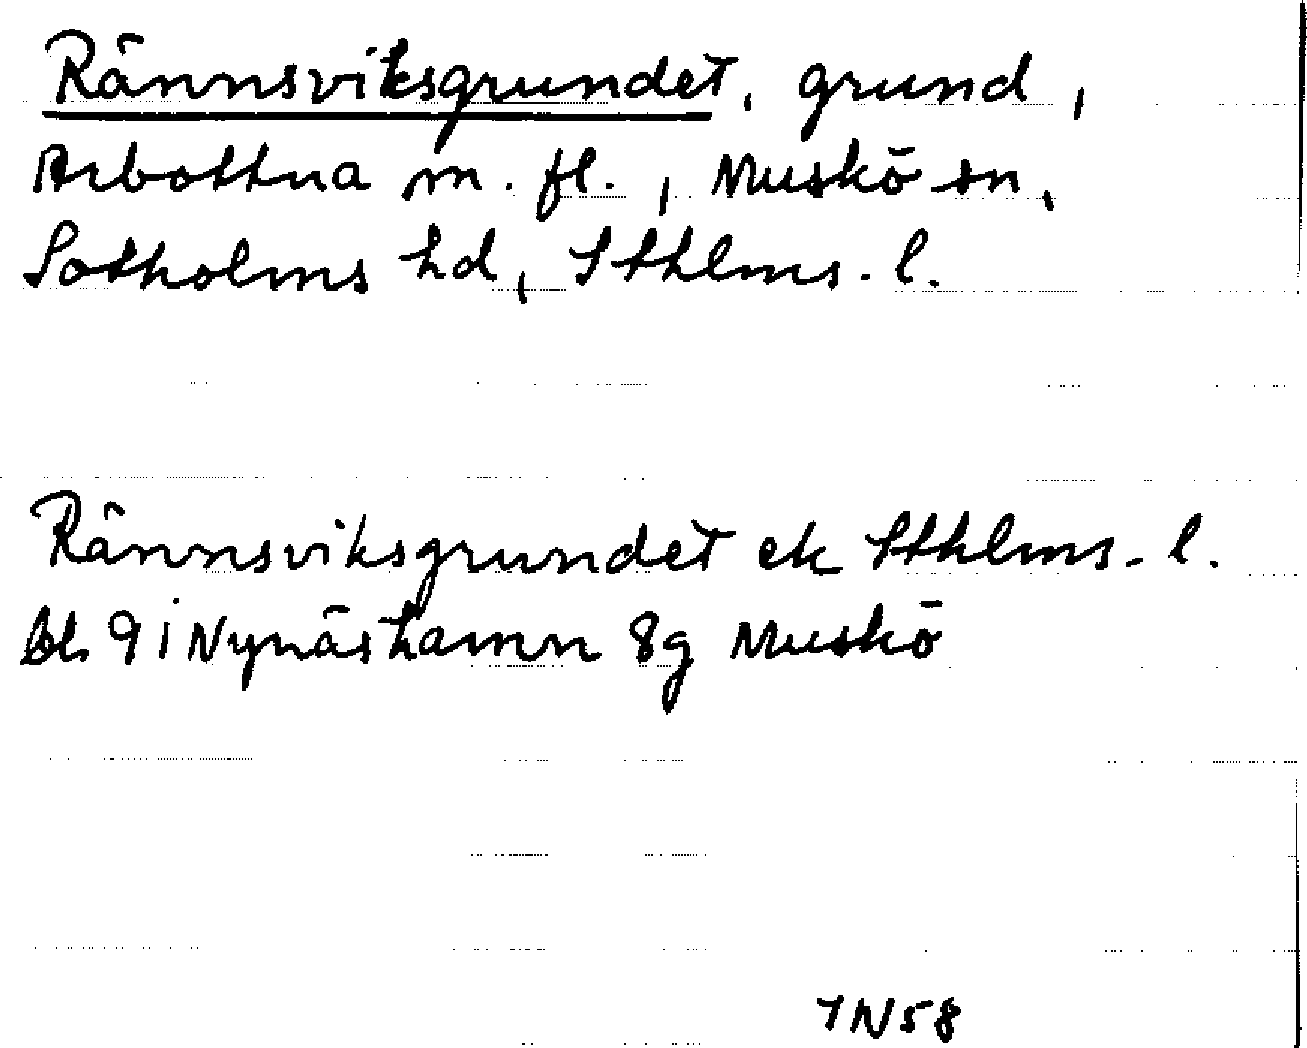 Rännsviksgrundet, grund,
Arbottna m. fl., Muskö sn,
Sotholms hd, Sthlms. l.
Rännsviksgrundet ek Sthlms. l.
bl. 9 i Nynäshamn 8g Muskö
IN58